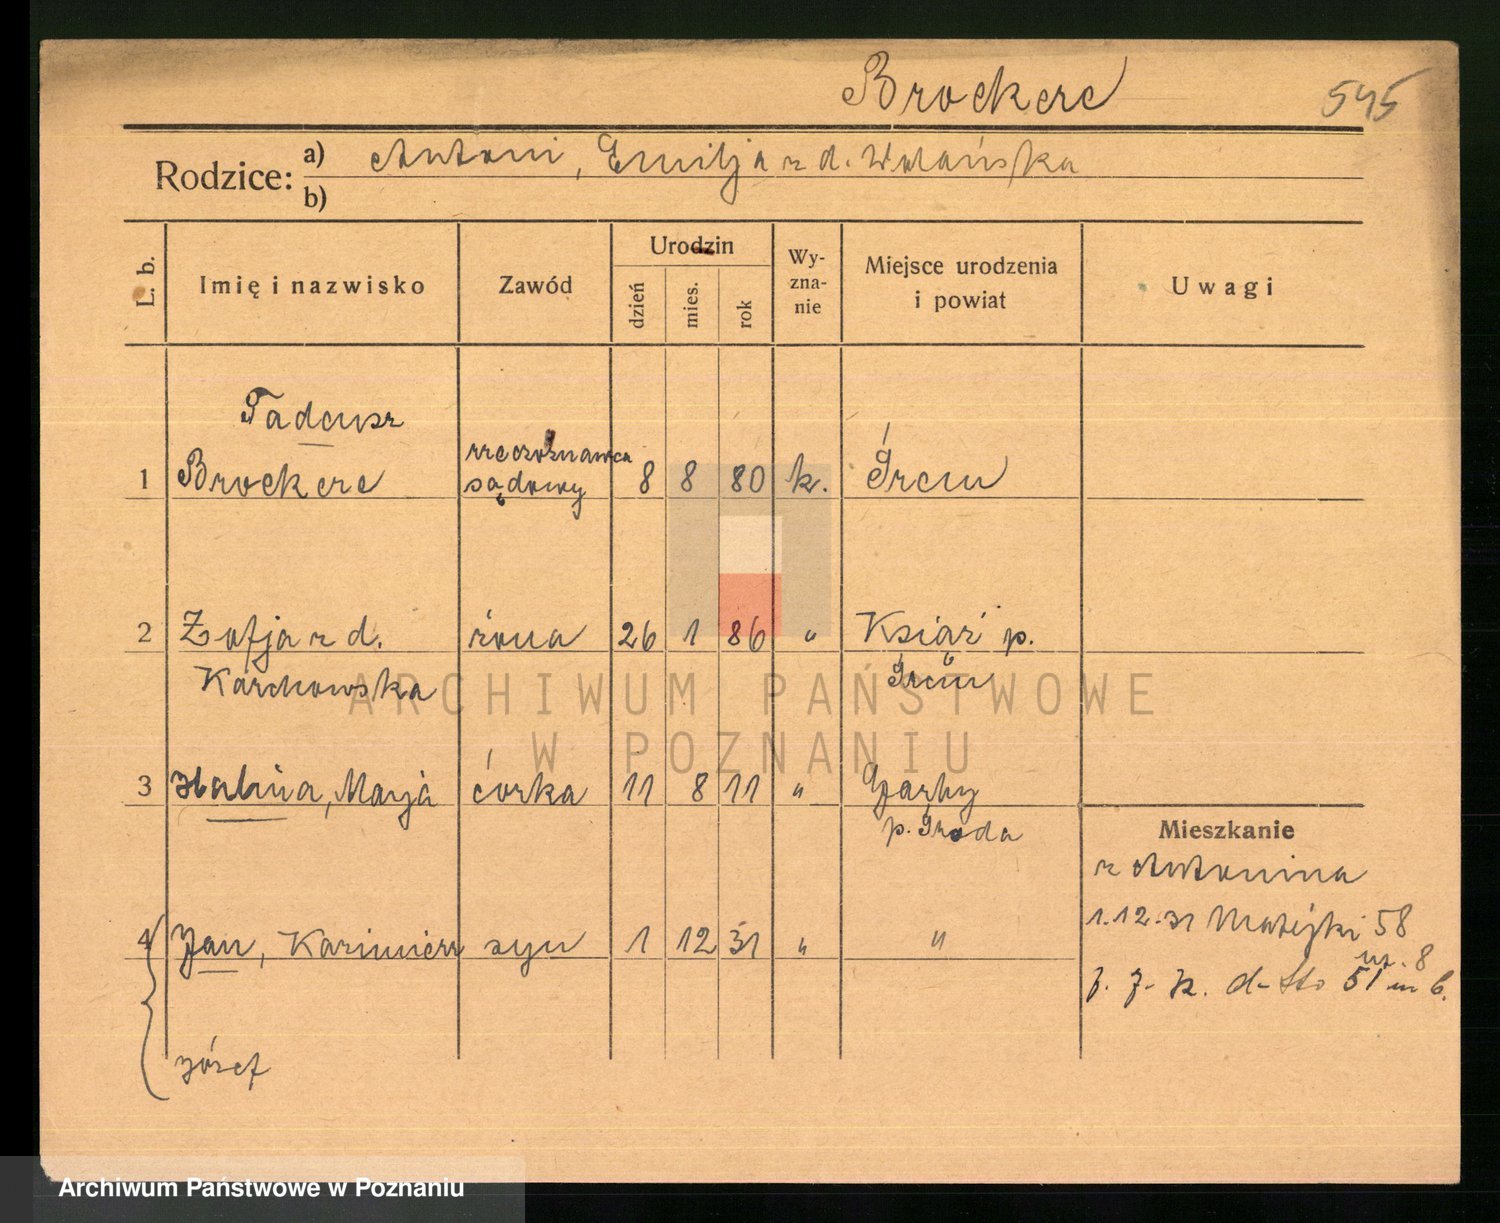 Brockere
545
Rodzice: a) Antoni, Emilja z d. Wolańska
b)
L. b.
Imię i nazwisko
Zawód
Urodzin
dzień
mies.
rok
Wy-
zna-
nie
Miejsce urodzenia
i powiat
Uwagi
Tadeusz
1 Brockere rzeczoznawca sądowy 8 8 80 k. Śrem
2 Zofja z d. żona 26 1 86 " Książ p.
Karchowska Śrem
ARCHIWUM PAŃSTWOWE
W POZNANIU
3 Halina, Marja córka 11 8 11 " Garby
p. Środa
Mieszkanie
z Antonina
4 Jan, Kazimierz syn 1 12 31 " "
1.12.31 Matejki 58
m. 8
j. d-tto 51 m 6.
Józef
Archiwum Państwowe w Poznaniu